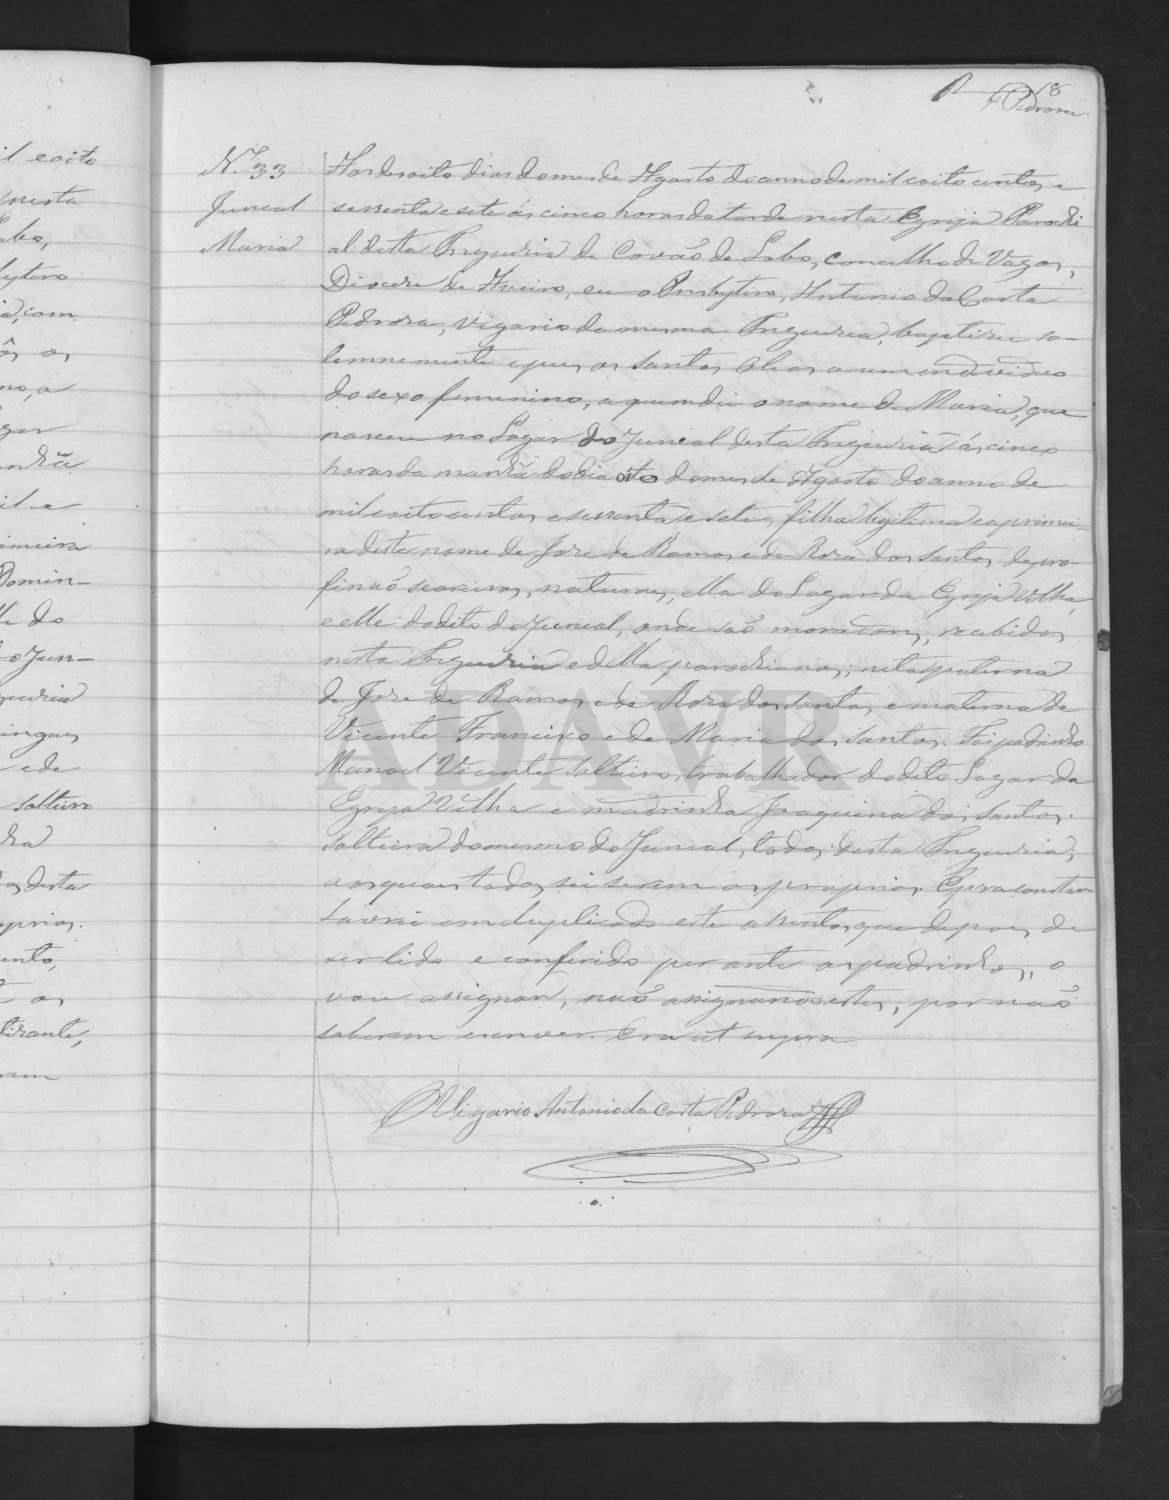 18
Pedroza
N.º 33
Juncal
Maria
Aos desoito dias do mes de Agosto do anno de mil oito centos e
sessenta e sete ás cinco horas da tarde nesta Egreja Parochi
al desta Freguezia de Covão de Lobo, concelho de Vagos,
Diocese de Aveiro, eu o Presbytero, Antonio da Costa
Pedroza, Vigario da mesma Freguezia, baptizei so-
lemnemente e puz os santos Oleos a um individuo
do sexo femenino, a quem dei o nome de Maria, que
nasceu no Lugar do Juncal desta Freguezia ás cinco
horas da manhã do dia oito do mes de Agosto do anno de
mil oito centos e sessenta e sete, filha legitima e a primei-
ra deste nome de José de Ramos e de Roza dos Santos, de pro-
fissaõ seareiros, naturaes, ella do Lugar da Egreja Velha,
e elle do dito do Juncal, onde saõ moradores, recebidos
nesta Freguezia e della parochianos; neta paterna
de José de Ramos e de Roza dos Santos, e materna de
Vicente Francisco e de Maria dos Santos. Foi padrinho
Manoel Vicente solteiro, trabalhador do dito Lugar da
Egreja Velha e madrinha Joaquina dos Santos
solteira do mesmo do Juncal, todos desta Freguezia,
aos quaes todos sei serem os proprios. E para constar
lavrei em duplicado este assento, que depois de
ser lido e conferido perante os padrinhos, o
vou assignar, naõ assignando estes, por naõ
saberem escrever. Era ut supra
O Vigario Antonio da Costa Pedroza
ADAVR
il eoito
nesta
Lobo,
bytero
com
os
a
gar
il e
imeira
Domin-
do
Jun-
guezia
ingues
e de
solteiro
desta
oprios.
ento,
os